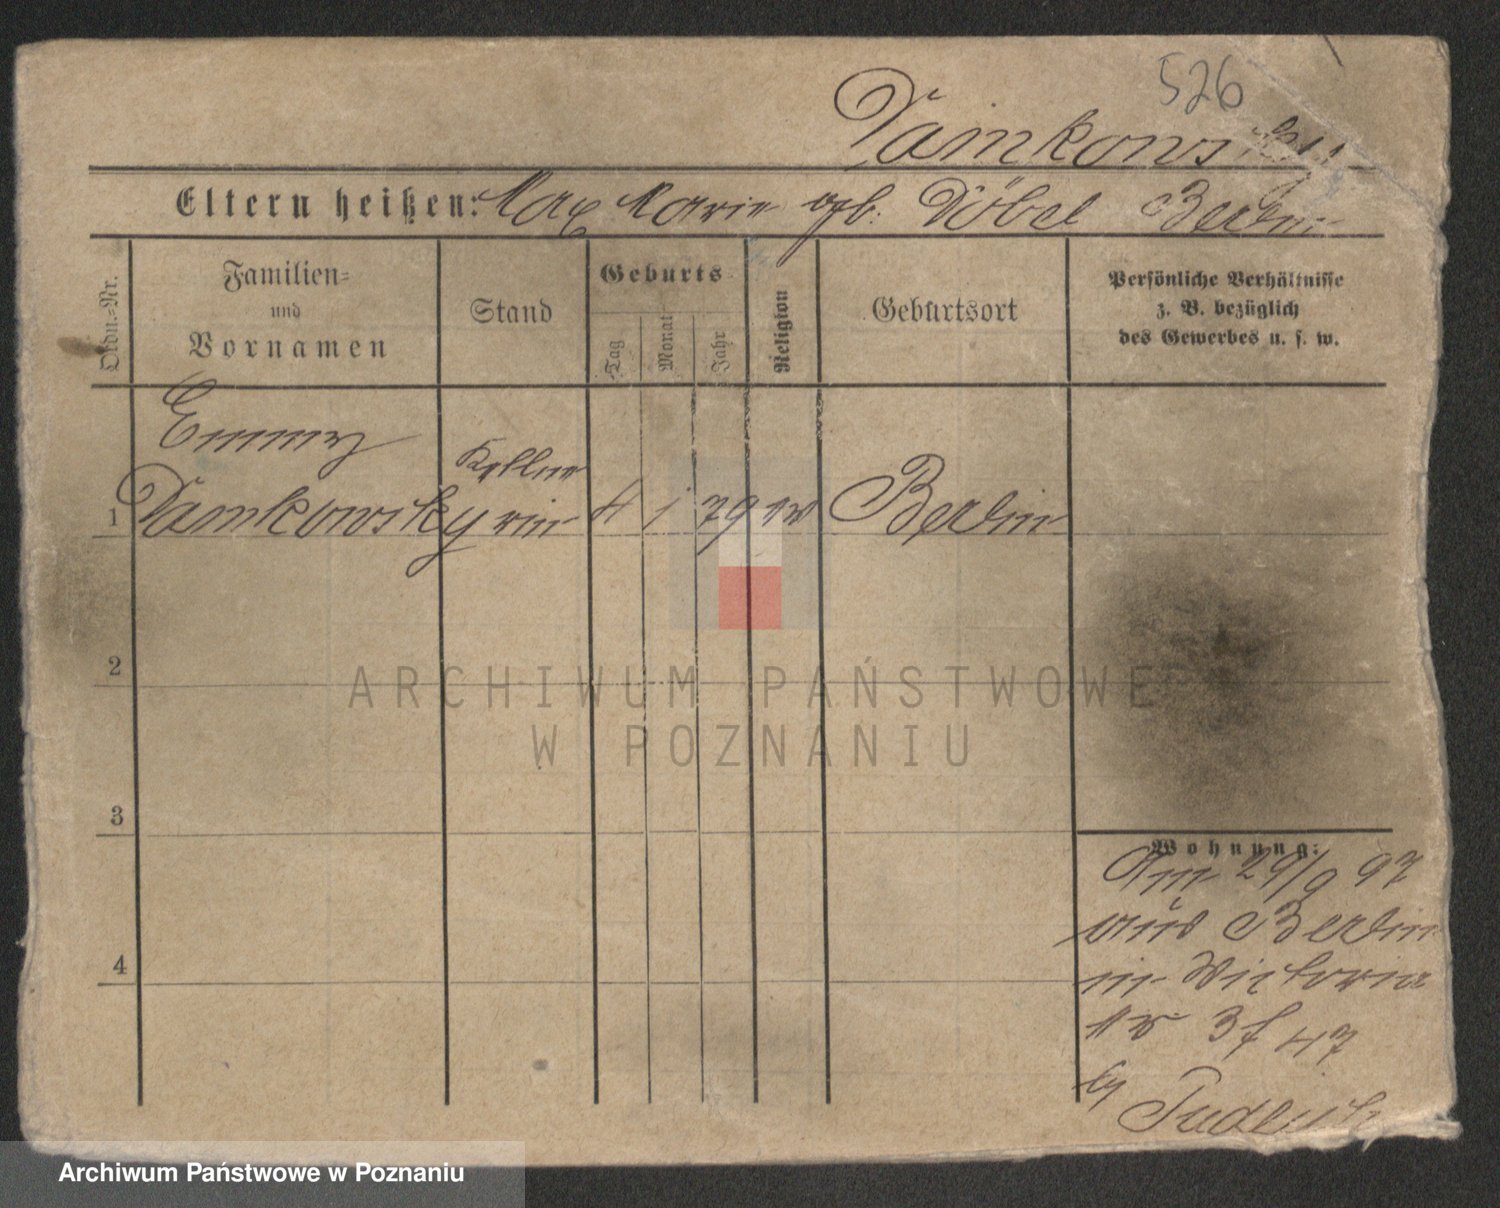 526
Damkowsky
Eltern heißen: Max Marie geb. Döbel Berlin
Ordn.=Nr.
Familien=
und
Vornamen
Stand
Geburts
Tag
Monat
Jahr
Religion
Geburtsort
Persönliche Verhältnisse
z. B. bezüglich
des Gewerbes u. s. w.
Emmy
Kellne
1 Damkowsky rin 4 1 79 Berlin
2
3
4
Wohnung:
Am 29/9 97
aus Berlin
in Victoria
3 47
ARCHIWUM PAŃSTWOWE
W POZNANIU
Archiwum Państwowe w Poznaniu